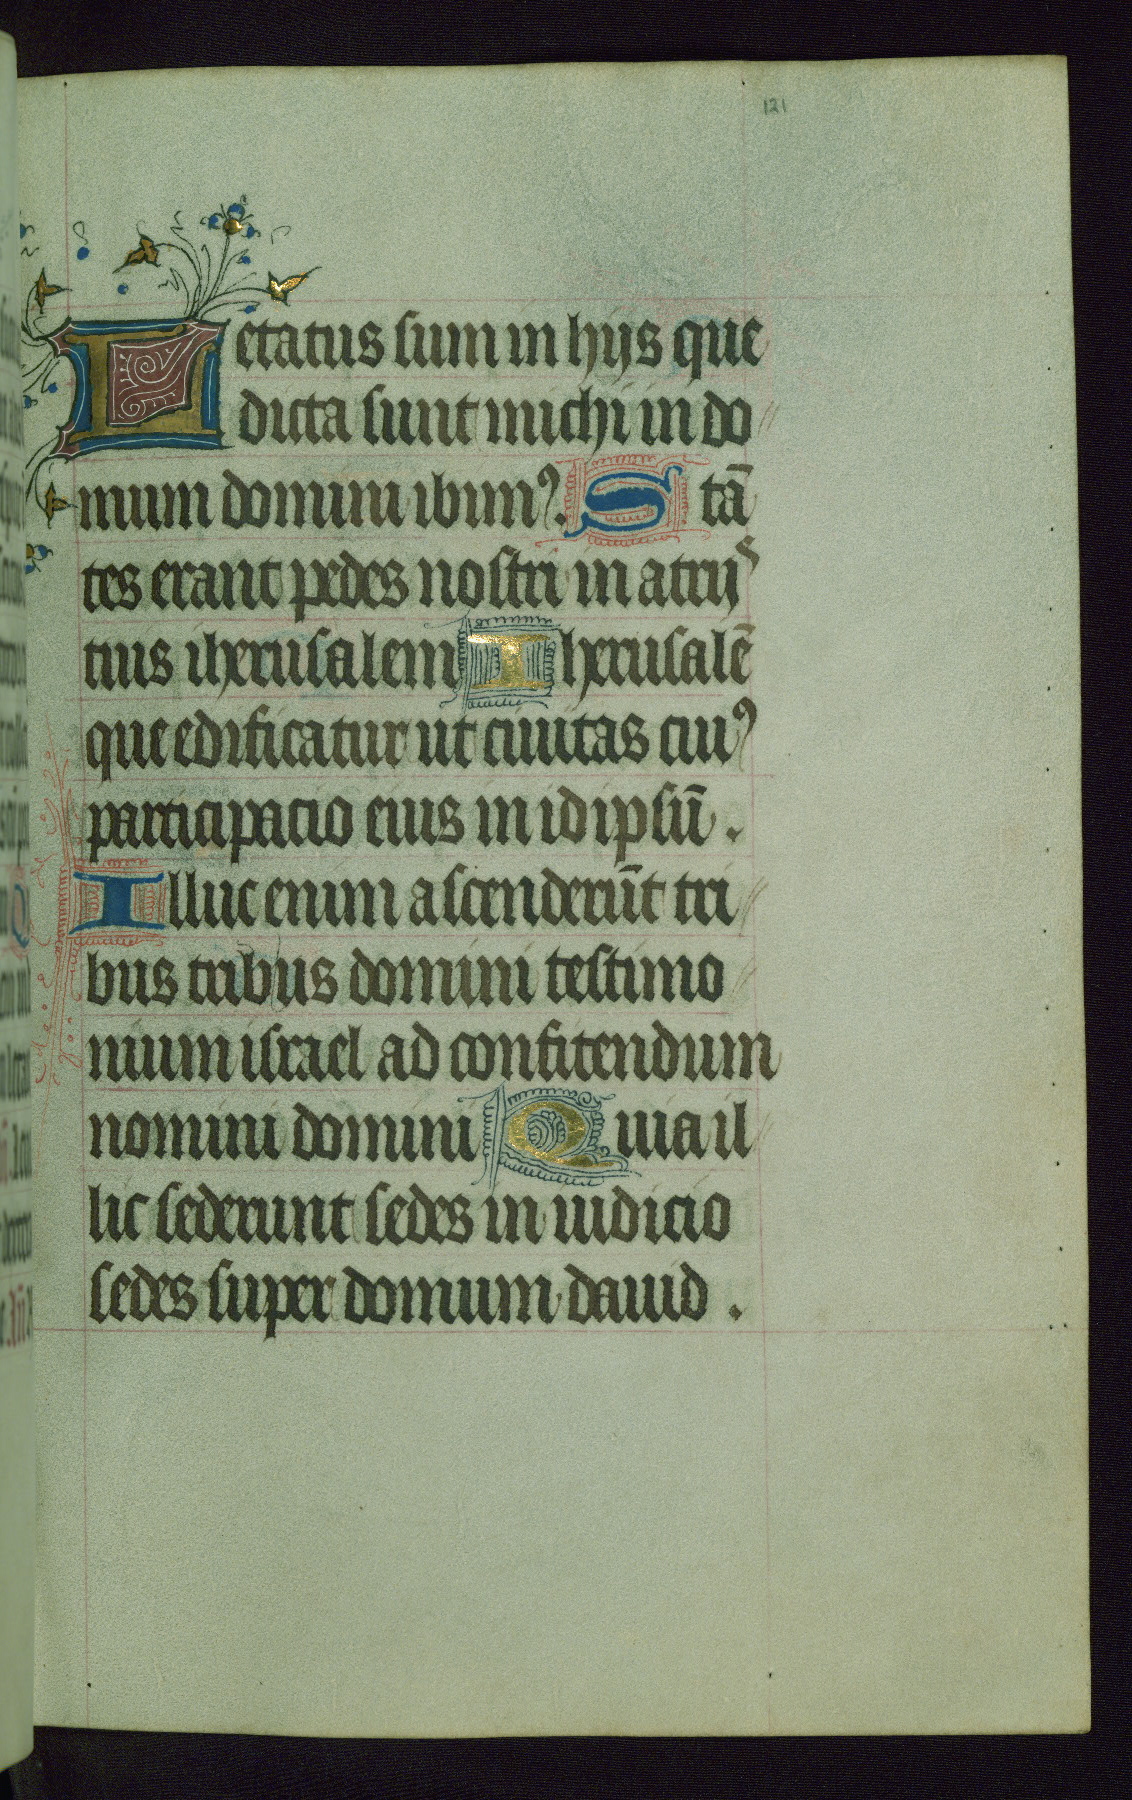 121
Letatus sum in hijs que
dicta sunt michi in do
mum domini ibimꝰ. Stā
tes erant pedes nostri in atrijs
tuis iherusalem Iherusalē
que edificatur ut ciuitas cuiꝰ
participacio eius in idipsū.
Illuc enim ascenderūt tri
bus tribus domini testimo
nium israel ad confitendum
nomini domini Quia il
lic sederunt sedes in iudicio
sedes super domum dauid.